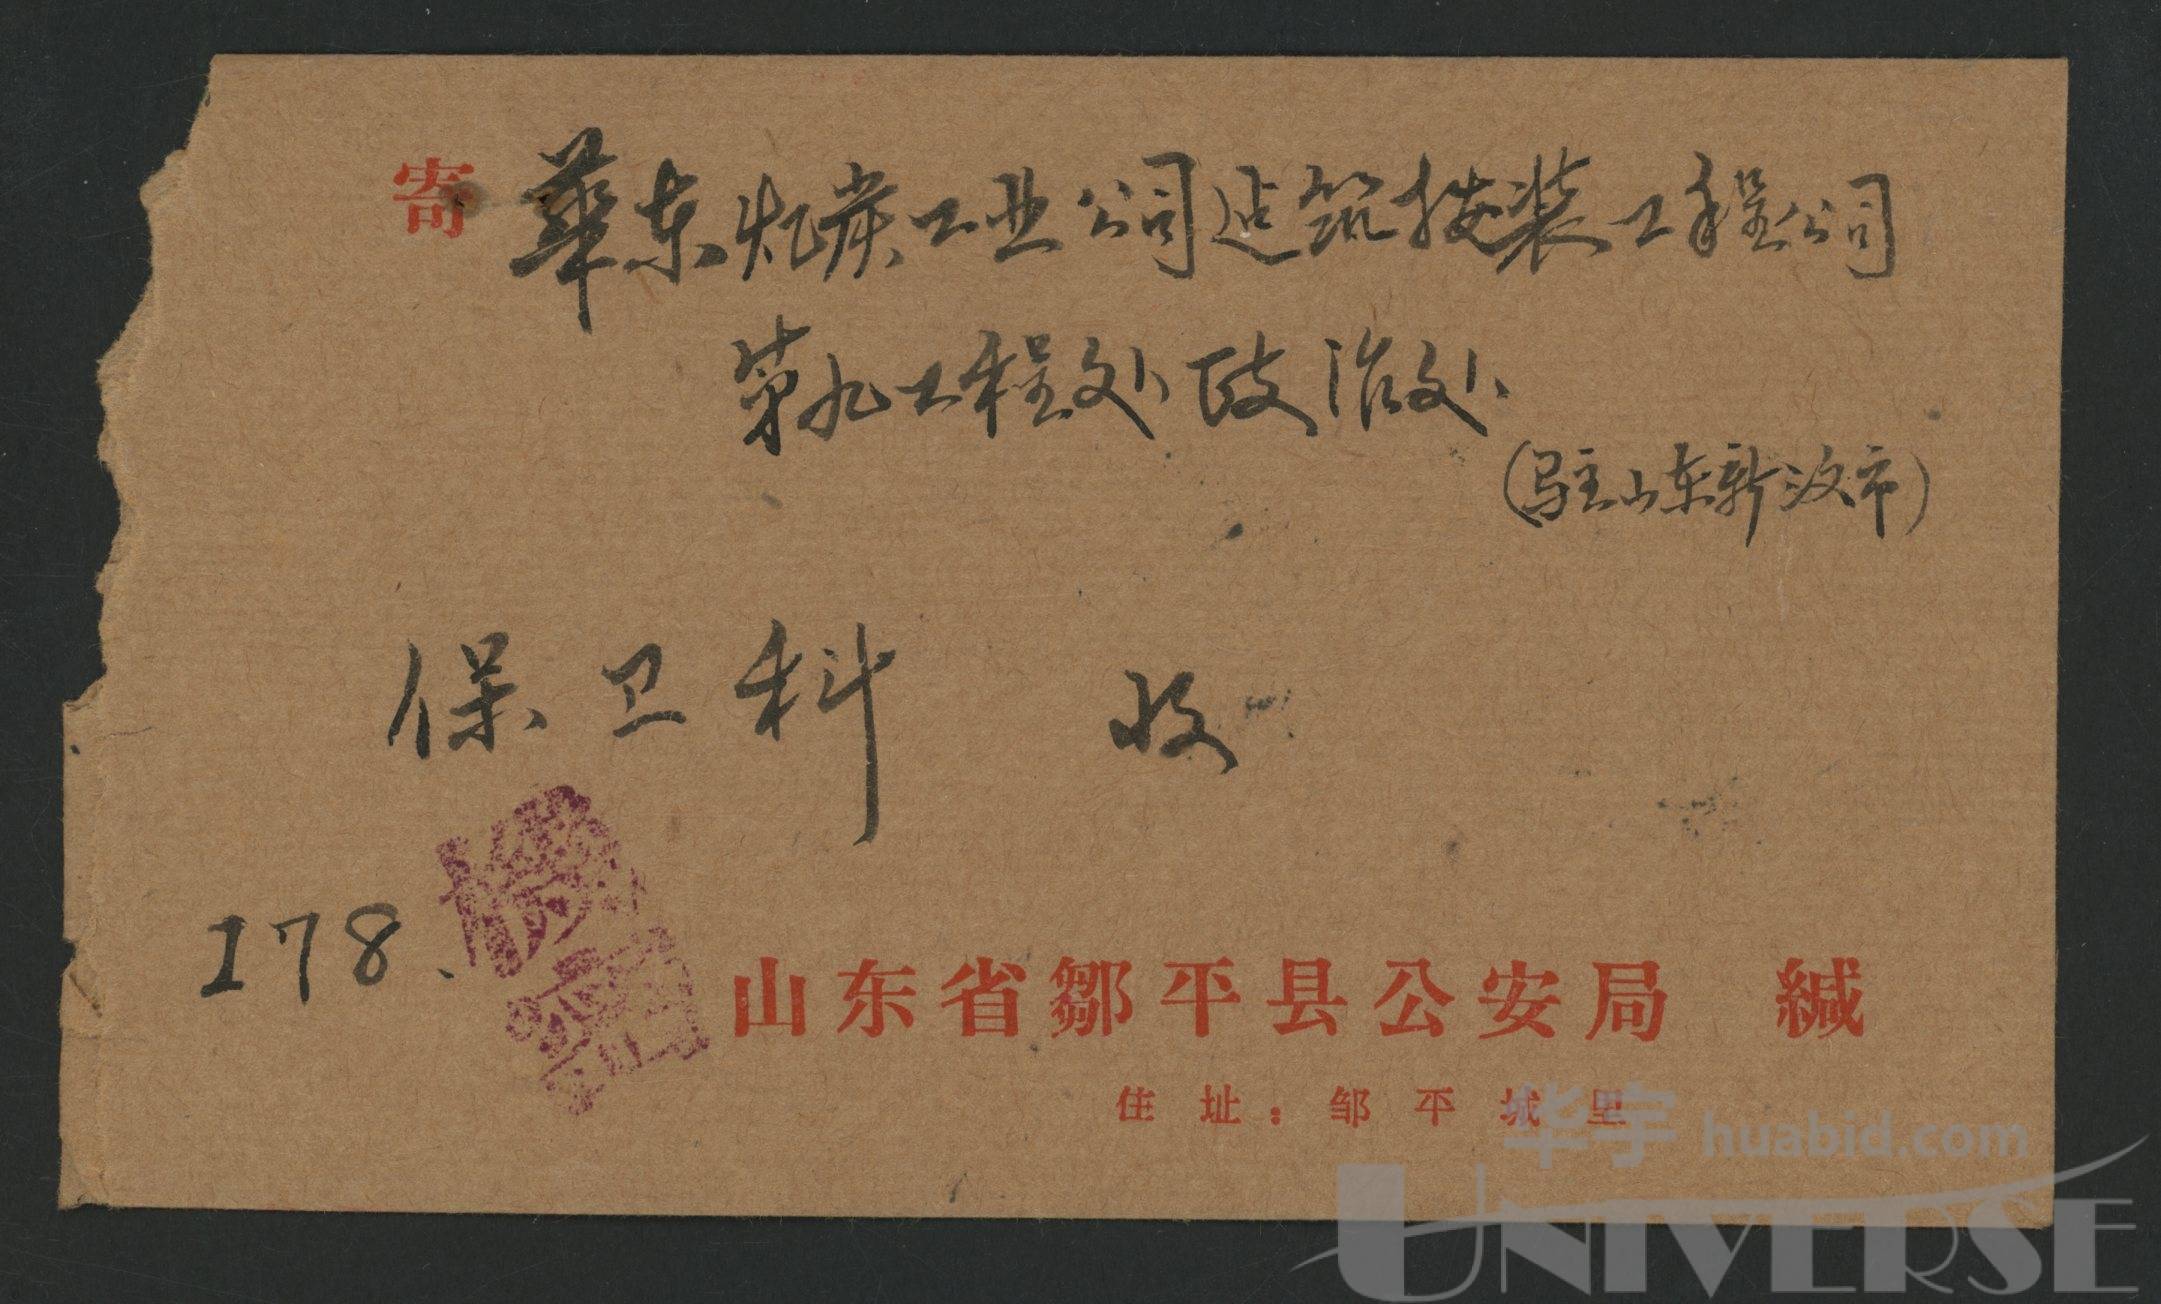 寄 華东煤炭工业公司建筑按装工程公司
第九工程处政治处
(驻山东新汶市)
保卫科 收
178.
山东省鄒平县公安局 緘
住址：邹平城里
华宇 huabid.com
UNIVERSE